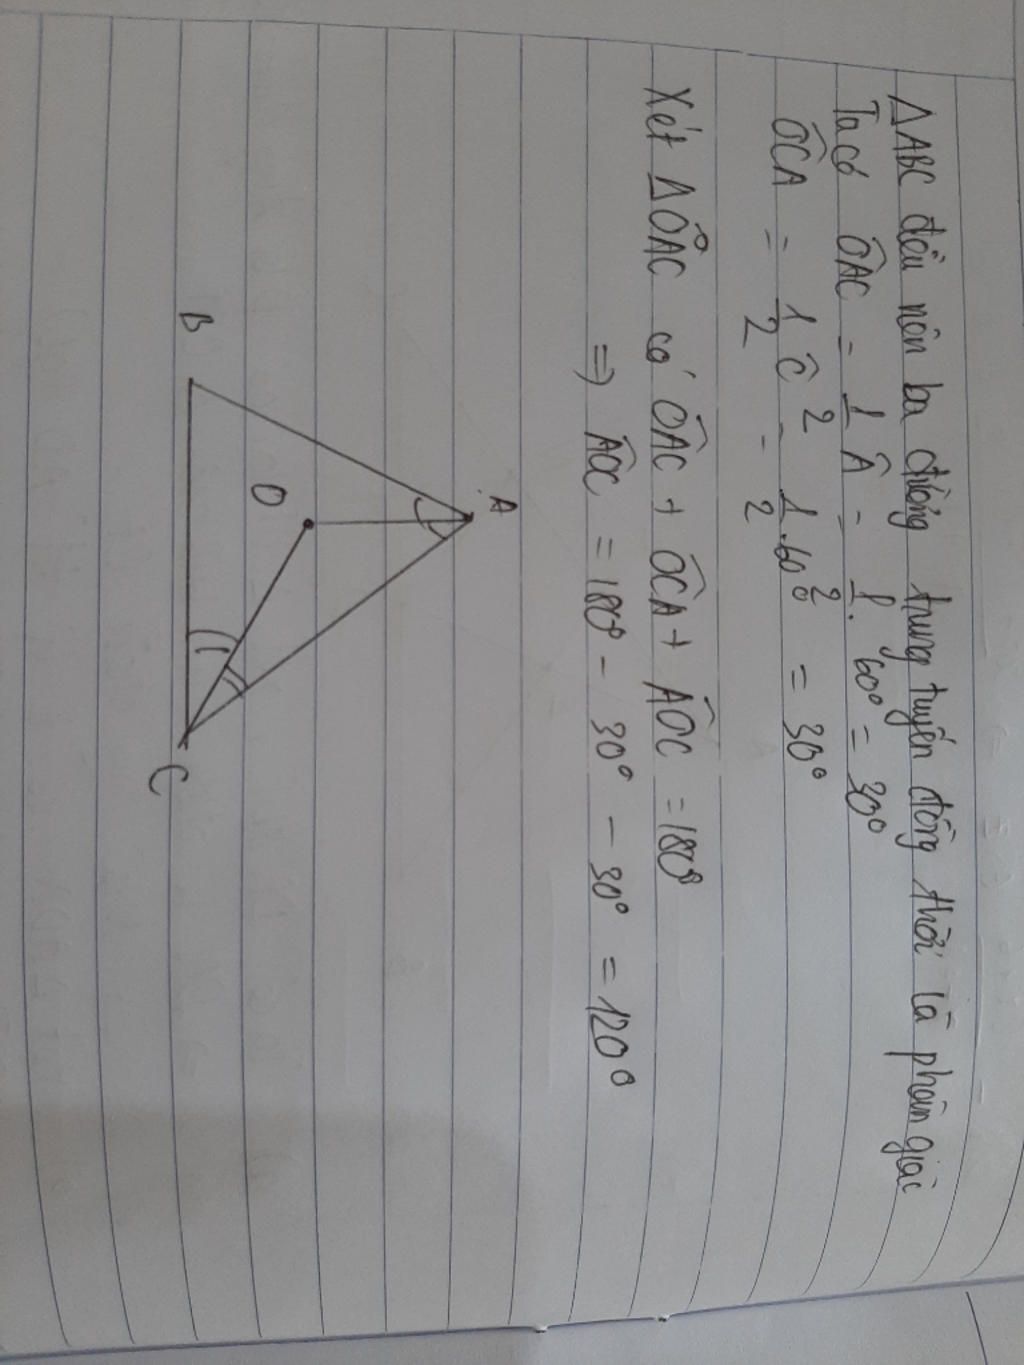 ΔABC đều nên ba đường trung tuyến đồng thời là phân giác
Ta có ÔAC = 1/2 Â = 1/2 . 60° = 30°
ÔCA = 1/2 Ĉ = 1/2 . 60° = 30°
Xét ΔOAC có ÔAC + ÔCA + ÂOC = 180°
=> ÂOC = 180° - 30° - 30° = 120°
A
O
B
C